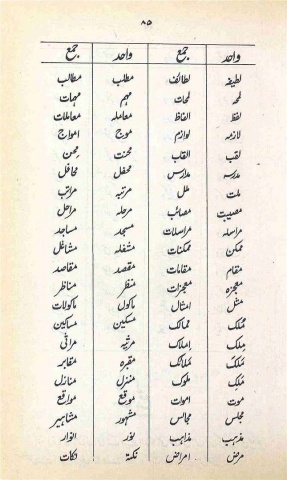 ۸۵
واحد جمع واحد جمع
لطیفہ لطائف مطلب مطالب
لمحہ لمحات مہم مہمات
لفظ الفاظ معاملہ معاملات
لازمہ لوازم موج امواج
لقب القاب محنت محن
مدرسہ مدارس محفل محافل
ملت ملل مرتبہ مراتب
مصیبت مصائب مرحلہ مراحل
مراسلہ مراسلات مسجد مساجد
ممکن ممکنات مشغلہ مشاغل
مقام مقامات مقصد مقاصد
معجزہ معجزات منظر مناظر
مثل امثال ماکول ماکولات
مُلک ممالک مسکین مساکین
مِلک املاک مرثیہ مراثی
مَلَک ملائک مقبرہ مقابر
مَلِک ملوک منزل منازل
موت اموات موقع مواقع
مجلس مجالس مشہور مشاہیر
مذہب مذاہب نور انوار
مرض امراض نکتہ نکات